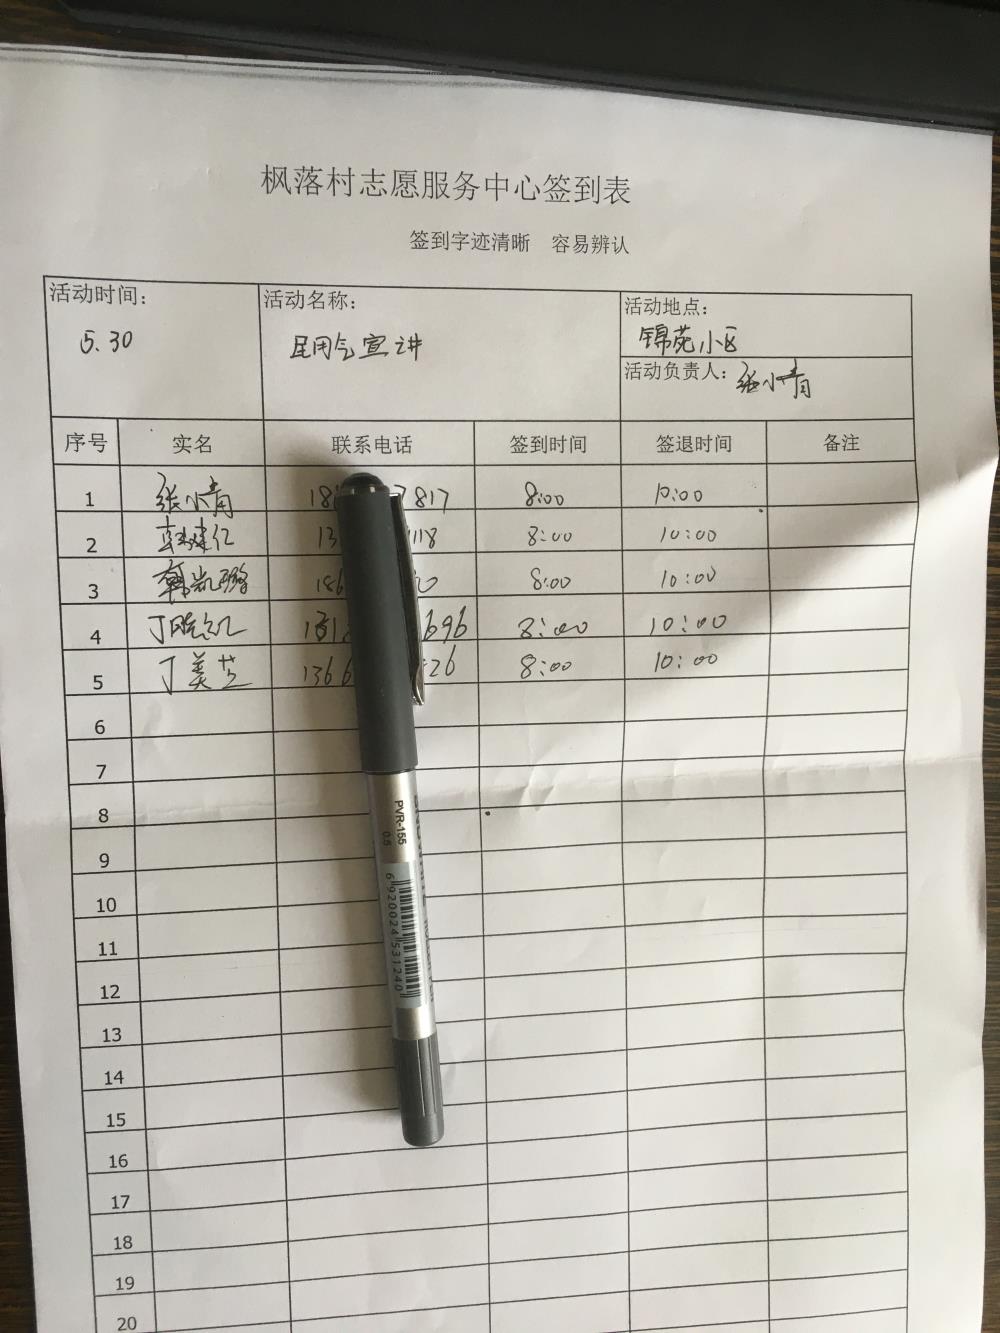 枫落村志愿服务中心签到表
签到字迹清晰 容易辨认
活动时间: 活动名称: 活动地点:
5.30 民用气宣讲 锦苑小区
活动负责人: 张小青
序号 实名 联系电话 签到时间 签退时间 备注
1 张小青 817 8:00 10:00
2 118 8:00 10:00
3 韩凯璐 8:00 10:00
4 696 8:00 10:00
5 丁美芝 1366 26 8:00 10:00
6
7
8
9
10
11
12
13
14
15
16
17
18
19
20
PVR-155
0.5
6920024531240